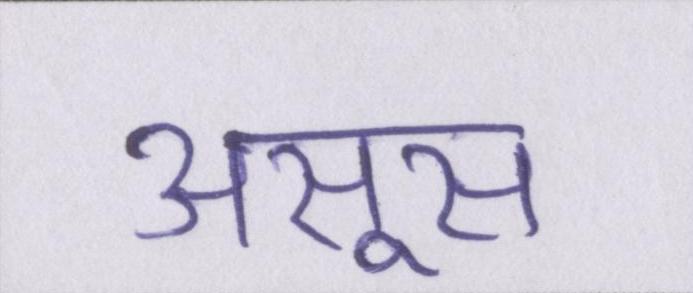 असूस